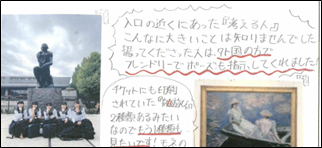 入口の近くにあった『考える人』
こんなに大きいことは知りませんでした
撮ってくださった人は、外国の方で
フレンドリーでポーズも指示してくれました!
チケットにも印刷
されていた『
2種類あるみたい
なのでもう1種類も
見たいです! モネの